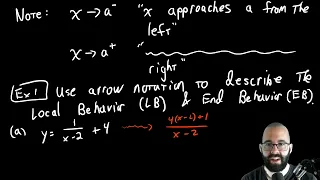 NOTE: x → a⁻ "x approaches a from the
left"
x → a⁺ "
right"
Ex 1 Use arrow notation to describe the
Local Behavior (LB) & End Behavior (EB).
(a) y = 1/(x-2) + 4 → (4(x-2)+1)/(x-2)